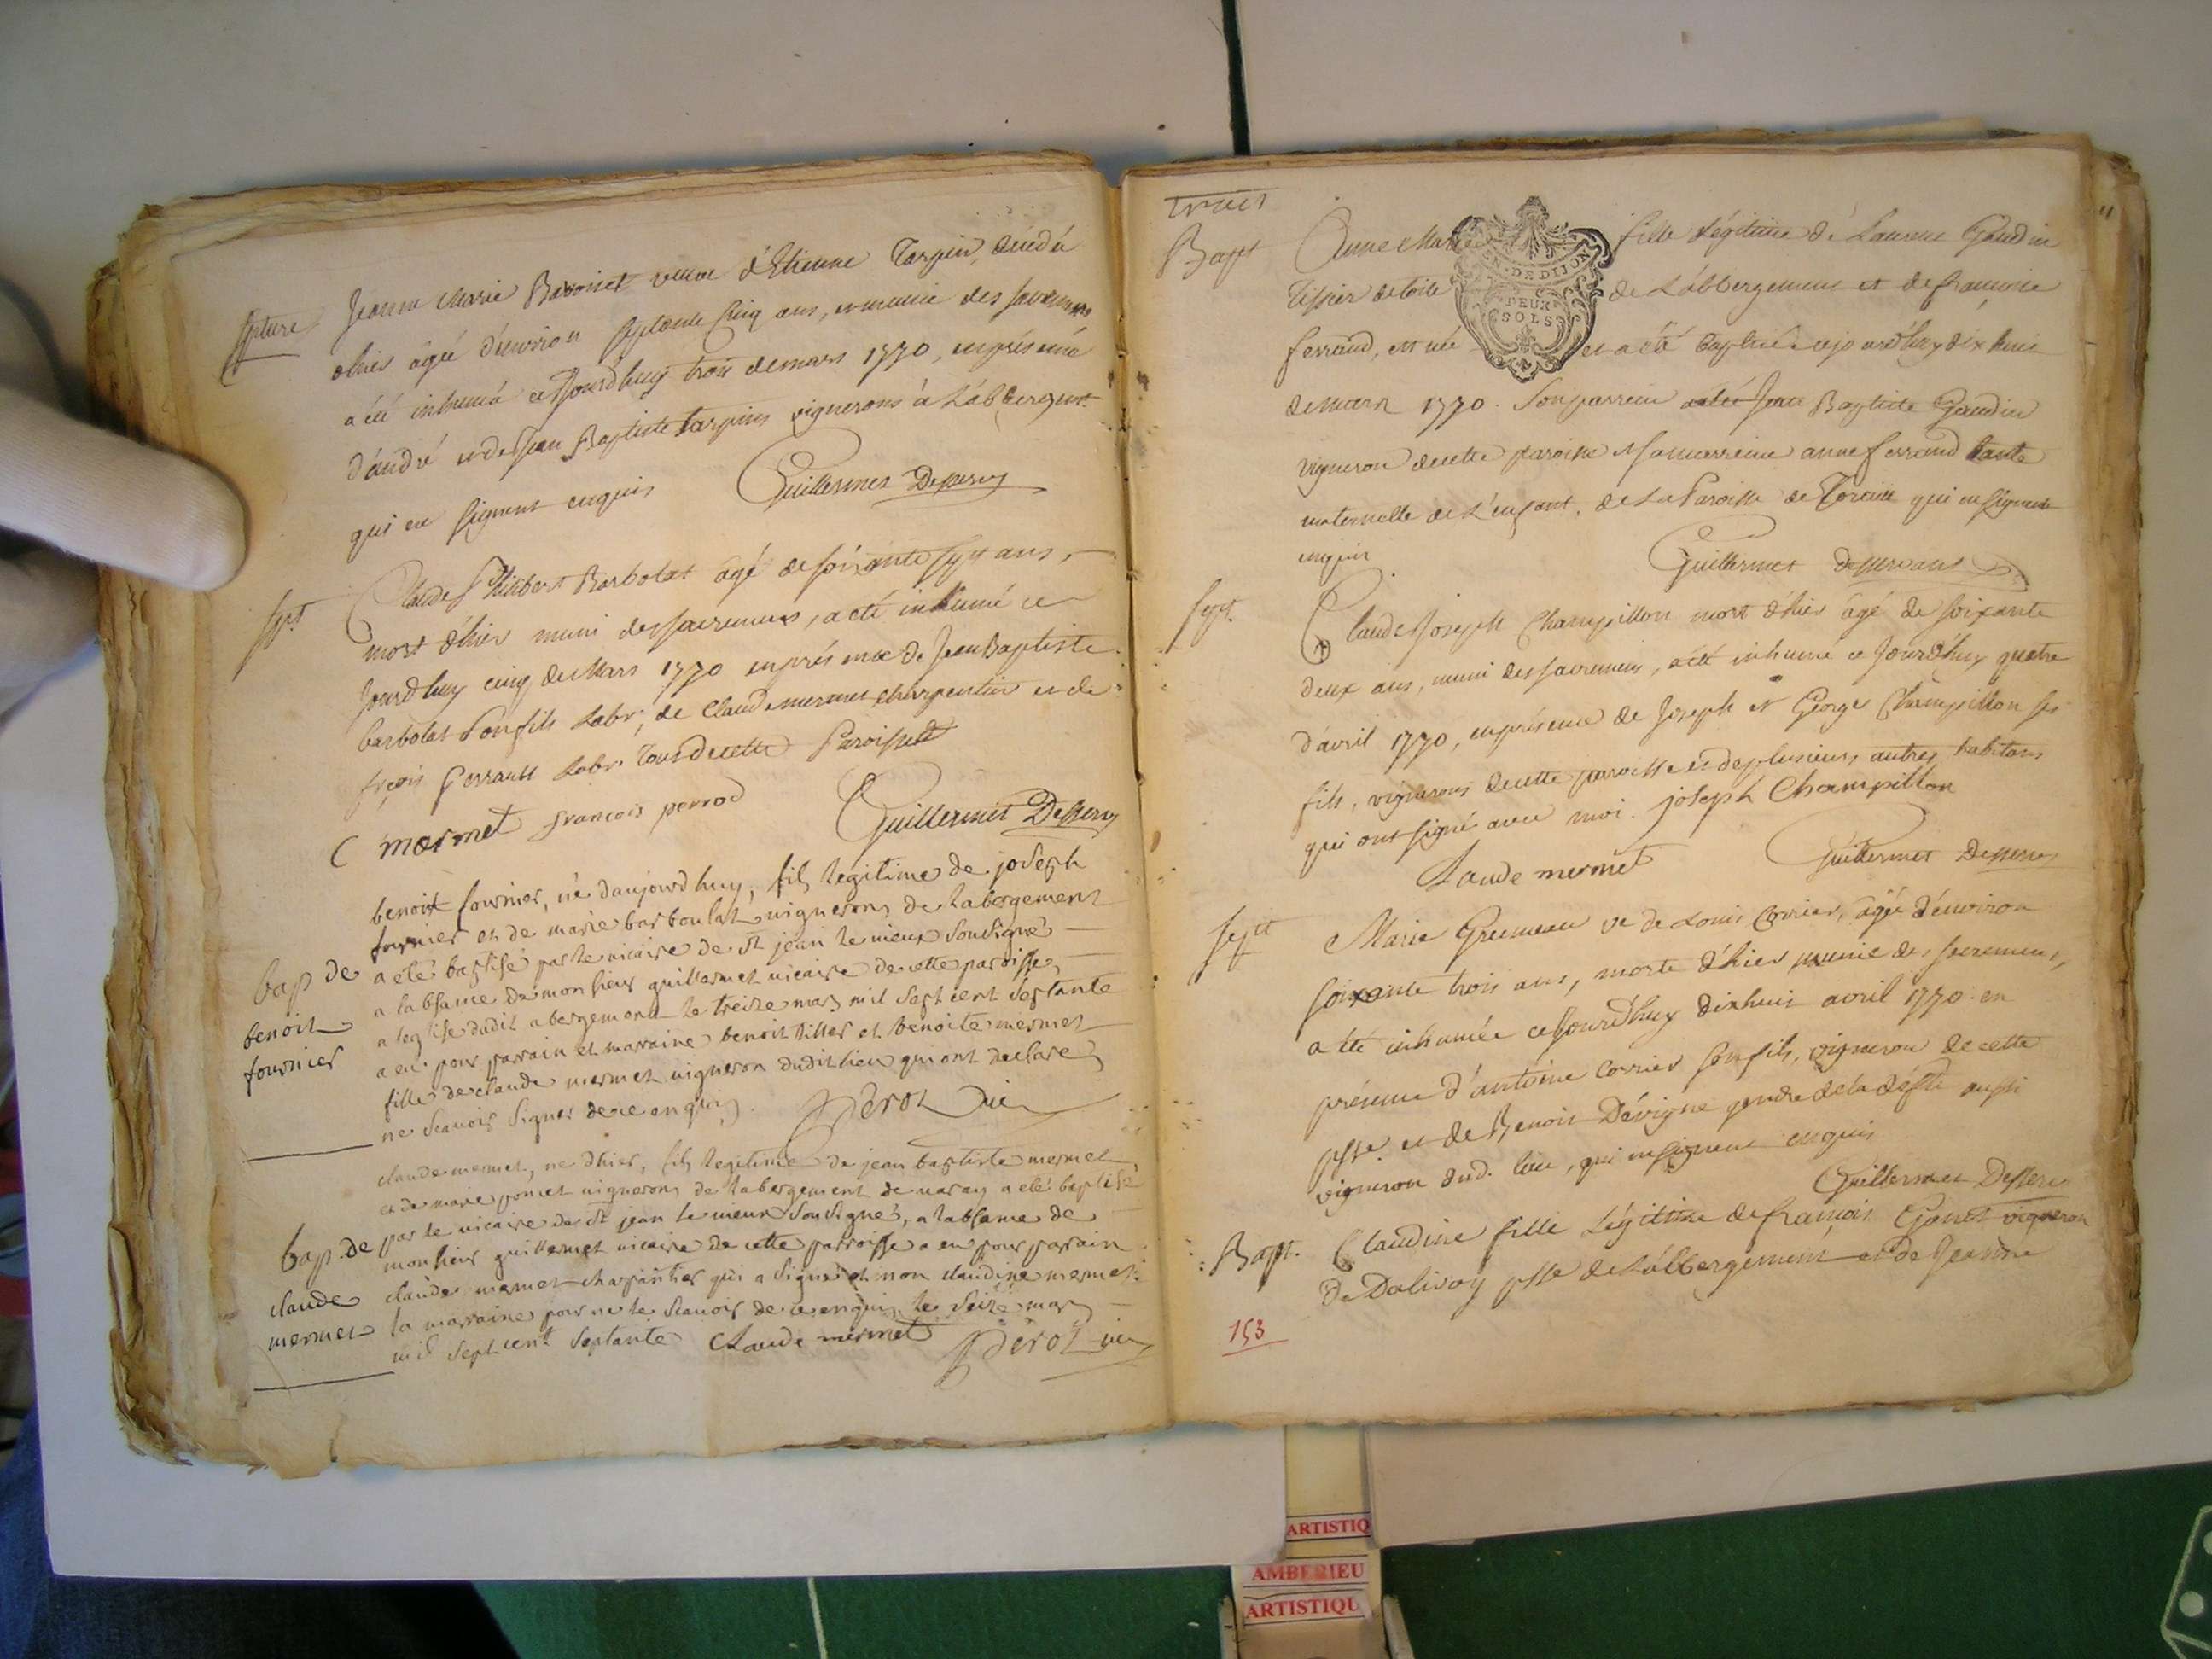 spture
Jeanne Marie Bavoiset veuve d'Etienne Tarpin, decedée
d'hier agée d'environ septante cinq ans, et munie des sacremens
a été inhumée cejourdhuy trois demars 1770, en présence
d'andré et de Jean Baptiste tarpins vignerons à Labbergemt
qui en signent enquis Guillermet Desserv
sept.
Claude Philibert Barbolat âgé de soixante sept ans,
mort d'hier muni des sacremens, a eté inhumé ce
jourdhuy cinq de Mars 1770 en présence de Jean Baptiste
barbolat son fils Labr, de Claude mermet charpentier et de
frçois Perraud Labr. Tous de cette Paroisse
C mermet francois perrod Guillermet Desserv
bap de
benoit
fournier
benoit fournier, né daujourdhuy, fils legitime de joseph
fournier et de marie barboulat vignerons de labergement
a eté baptisé par le vicaire de st jean le vieux soussigné
a labsance de monsieur guillermet vicaire de cette paroisse,
a leglise dudit abergement le treize mars mil sept cent septante
a eu pour parrain et marraine benoit tiller et benoite mermet
fille de claude mermet vigneron dudit lieu qui ont declaré
ne scavoir signer de ce enquis. Perot vic
bap. de
claude
mermet
claude mermet, né dhier, fils legitime de jean baptiste mermet
et de marie poncet vignerons de labergement de varay a eté baptisé
par le vicaire de st jean le vieux soussigné, a labsance de
monsieur guillermet vicaire de cette parroisse a eu pour parrain
claude mermet charpantier qui a signé et non claudine mermet
la marraine pour ne le scavoir de ce enquis le seize mars
mil sept cent septante Claude mermet Perot vic
Bapt
Anne Marie fille légitime de Laurent Gaudin
Tissier de toile de Labbergement et de françoise
ferrand, est née et a été baptisée cejourdhuy dix huit
de mars 1770. Son parrein a été Jean Baptiste Gaudin
vigneron de cette paroisse et sa marreine anne ferrand tante
maternelle de L'enfant, de La Paroisse de Torcieu qui en signent
enquis Guillermet desservant
EN. DE DIJON
DEUX
SOLS
sept.
Claude Joseph Champillon mort d'hier âgé de soixante
deux ans, muni des sacremens, a été inhumé ce Jourd'huy quatre
d'avril 1770, en présence de Joseph et George Champillon ses
fils, vignerons de cette paroisse et de plusieurs autres habitans
qui ont signé avec moi. joseph Champillon
Claude mermet Guillermet Desserv
sept
Marie Grumeau ve de Louis Corrier, âgée d'environ
soixante trois ans, morte d'hier munie des sacremens,
a été inhumée ce jourd'huy dixhuit avril 1770. en
présence d'antoine Corrier son fils, vigneron de cette
psse. et de Benoit Dévigne gendre de la defte aussi
vigneron dud. lieu, qui en signent enquis
Guillermet Desserv
Bapt.
Claudine fille Légitime de françois Genet vigneron
De Dalivoy psse de Labbergement et de Jeanne
153
ARTISTIQ
AMBERIEU
ARTISTIQU